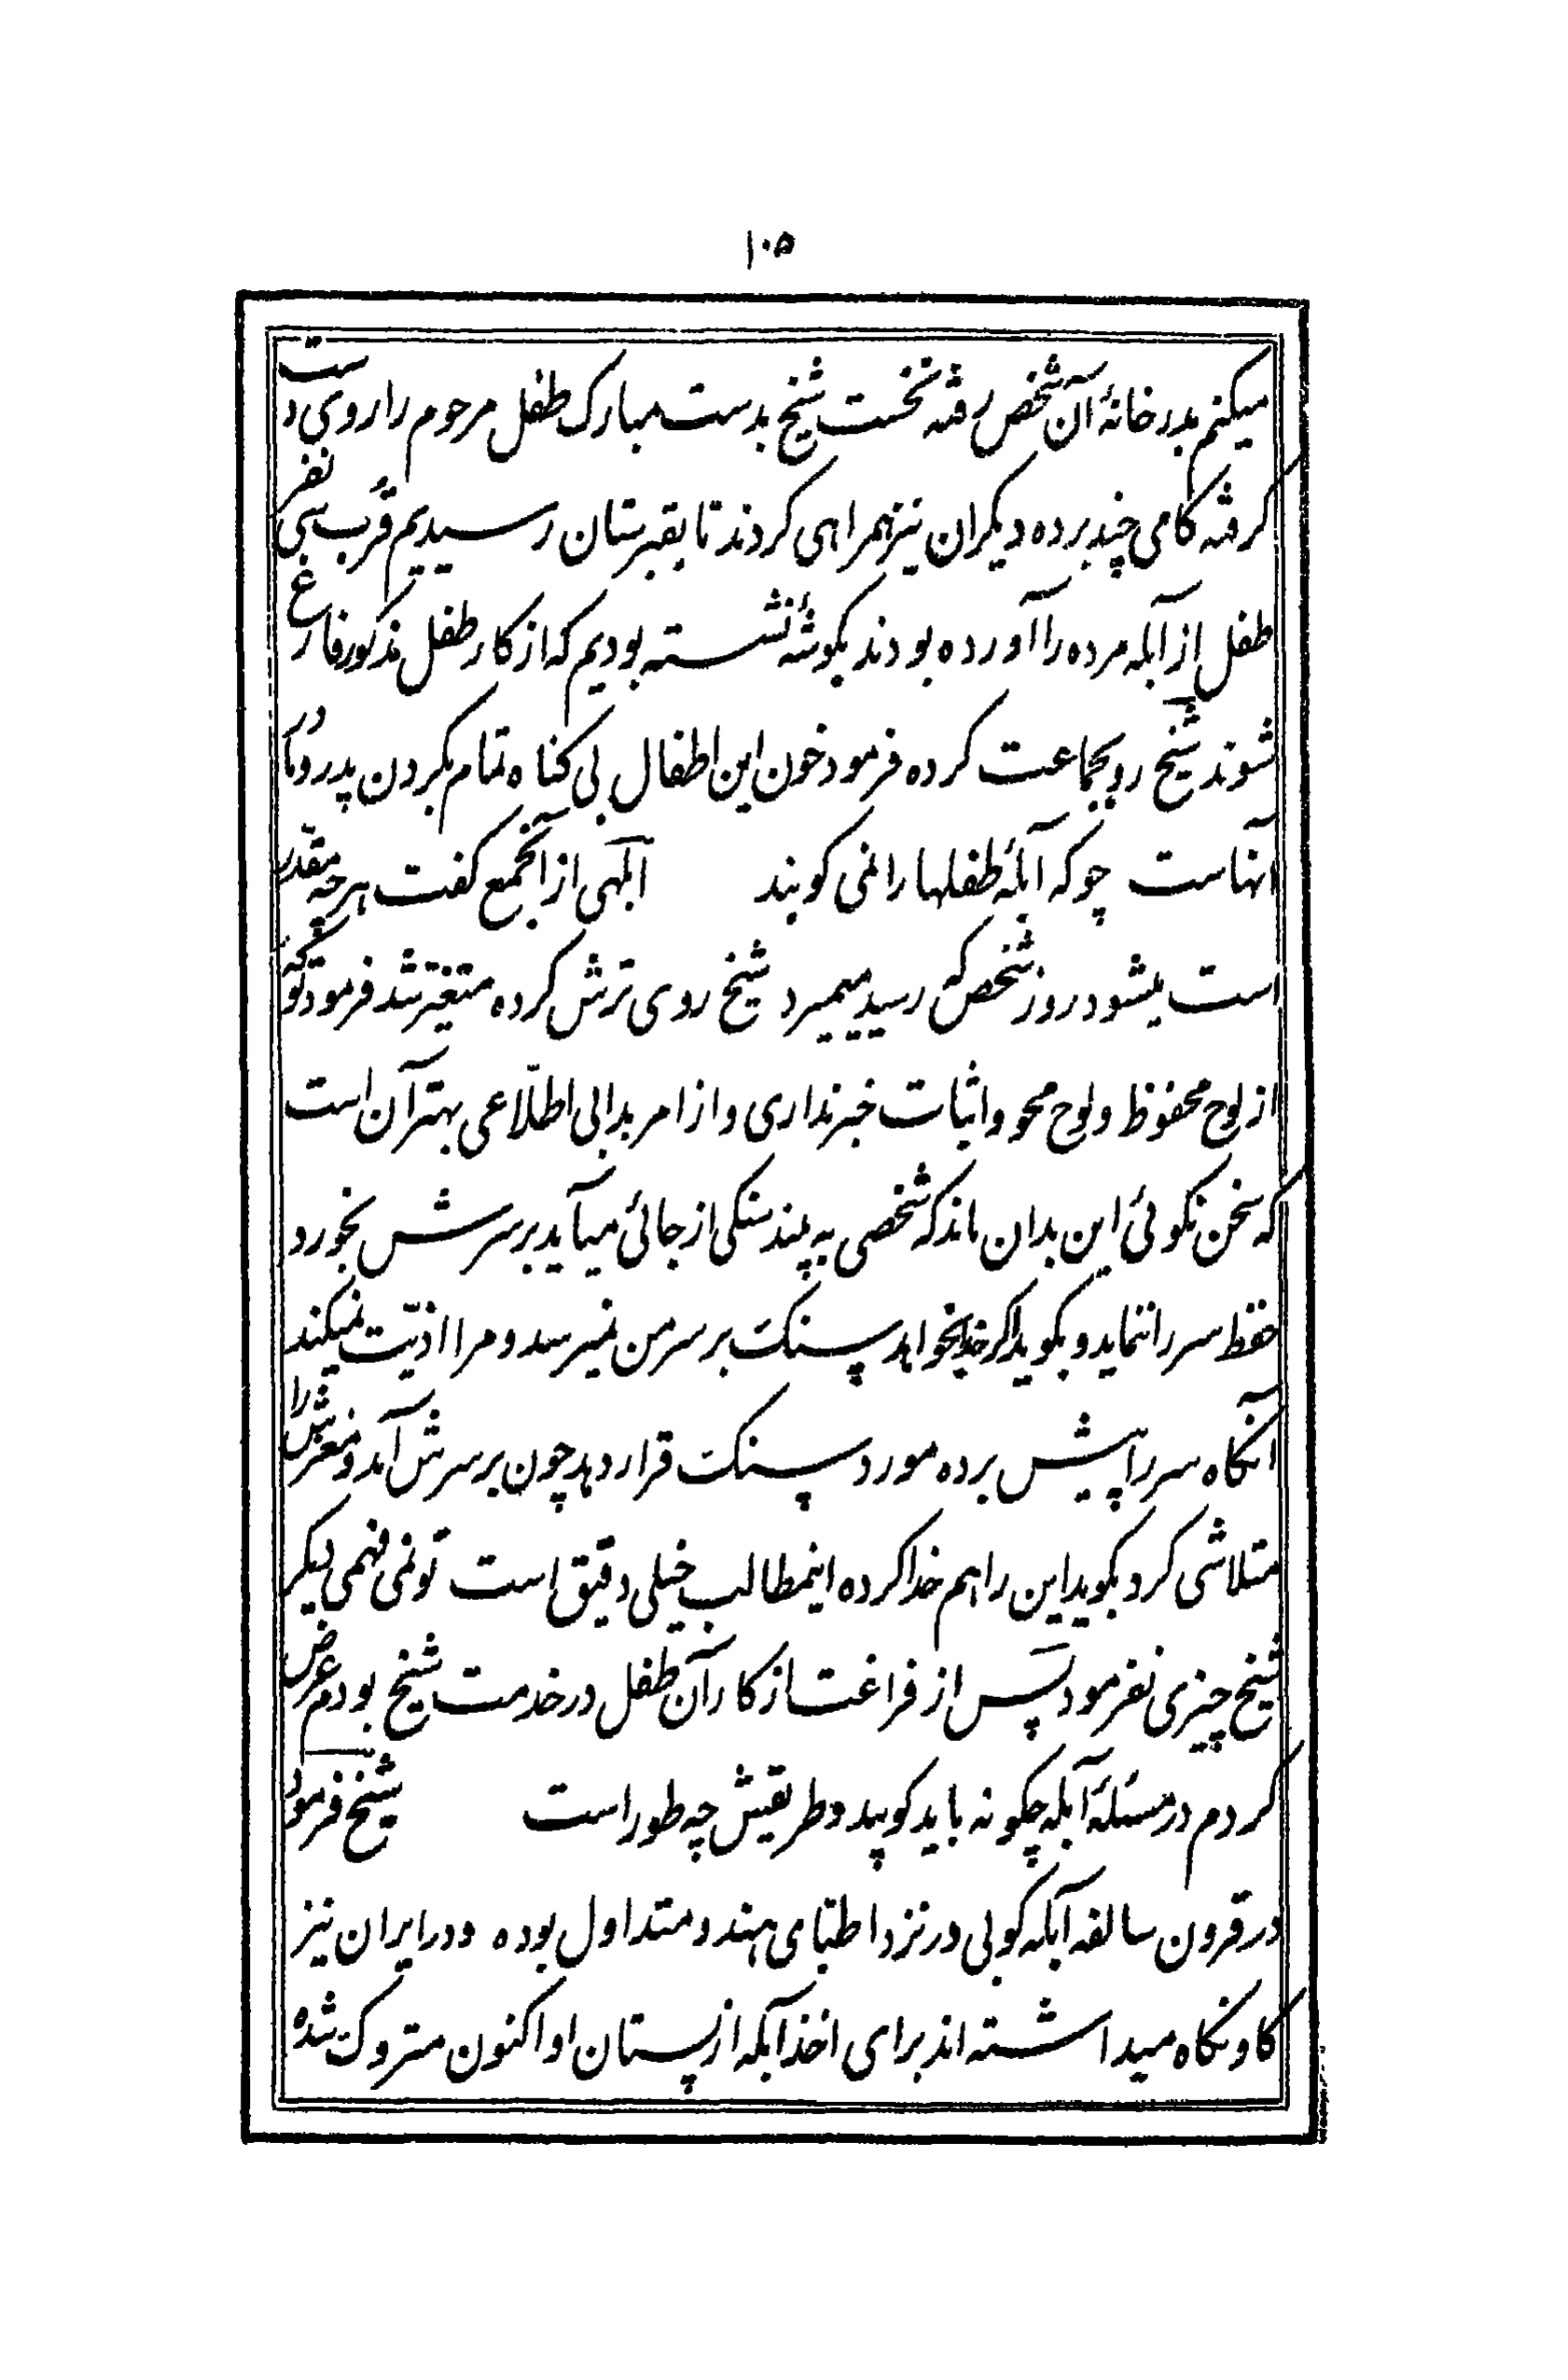 ۱۰۵
میکنم بدر خانهٔ آن شخص رفته نخست شیخ بدست مبارک طفل مرحوم را روی دست
کرفته کامی چند برده دیکران نیز همراهی کردند تا بقبرستان رسیدیم قرب سی نفر
طفل از آبله مرده را آورده بودند بکوشهٔ نشسته بودیم که از کار طفل مذکور فارغ
شوند شیخ رو بجماعت کرده فرمود خون این اطفال بی کناه تمام بکردن پدر و مادر
آنهاست چو که آبلهٔ طفلها را نمی کوبند ابلهی از آنجمع کفت هر چه مقدر
است میشود روز شخص که رسید میمیرد شیخ روی ترش کرده متغیر شد فرمود تو که
از لوح محفوظ و لوح محو و اثبات خبر نداری و از امر بدالی اطلاعی بهتر آن است
که سخن نکوئی این بدان ماند که شخصی به بیند سنکی از جائی میآید بر سرش بخورد
حفظ سر را ننماید و بکوید اکر خدا بخواهد سنک بر سر من نمیرسد و مرا اذیت نمیکند
آنکاه سر را پیش برده مورد سنک قرار دهد چون بر سرش آمد و مغزش را
متلاشی کرد بکوید این را هم خدا کرده اینمطالب خیلی دقیق است تو نمی فهمی دیکر
شیخ چیزی نفرمود پس از فراغت از کار آن طفل در خدمت شیخ بودم عرض
کردم در مسئلهٔ آبله چکونه باید کوبید و طریقش چه طور است شیخ فرمود
در قرون سالفه آبله کوبی در نزد اطبای هند و متداول بوده و در ایران نیز
کاو نکاه میداشته اند برای اخذ آبله از پستان او اکنون متروک شده